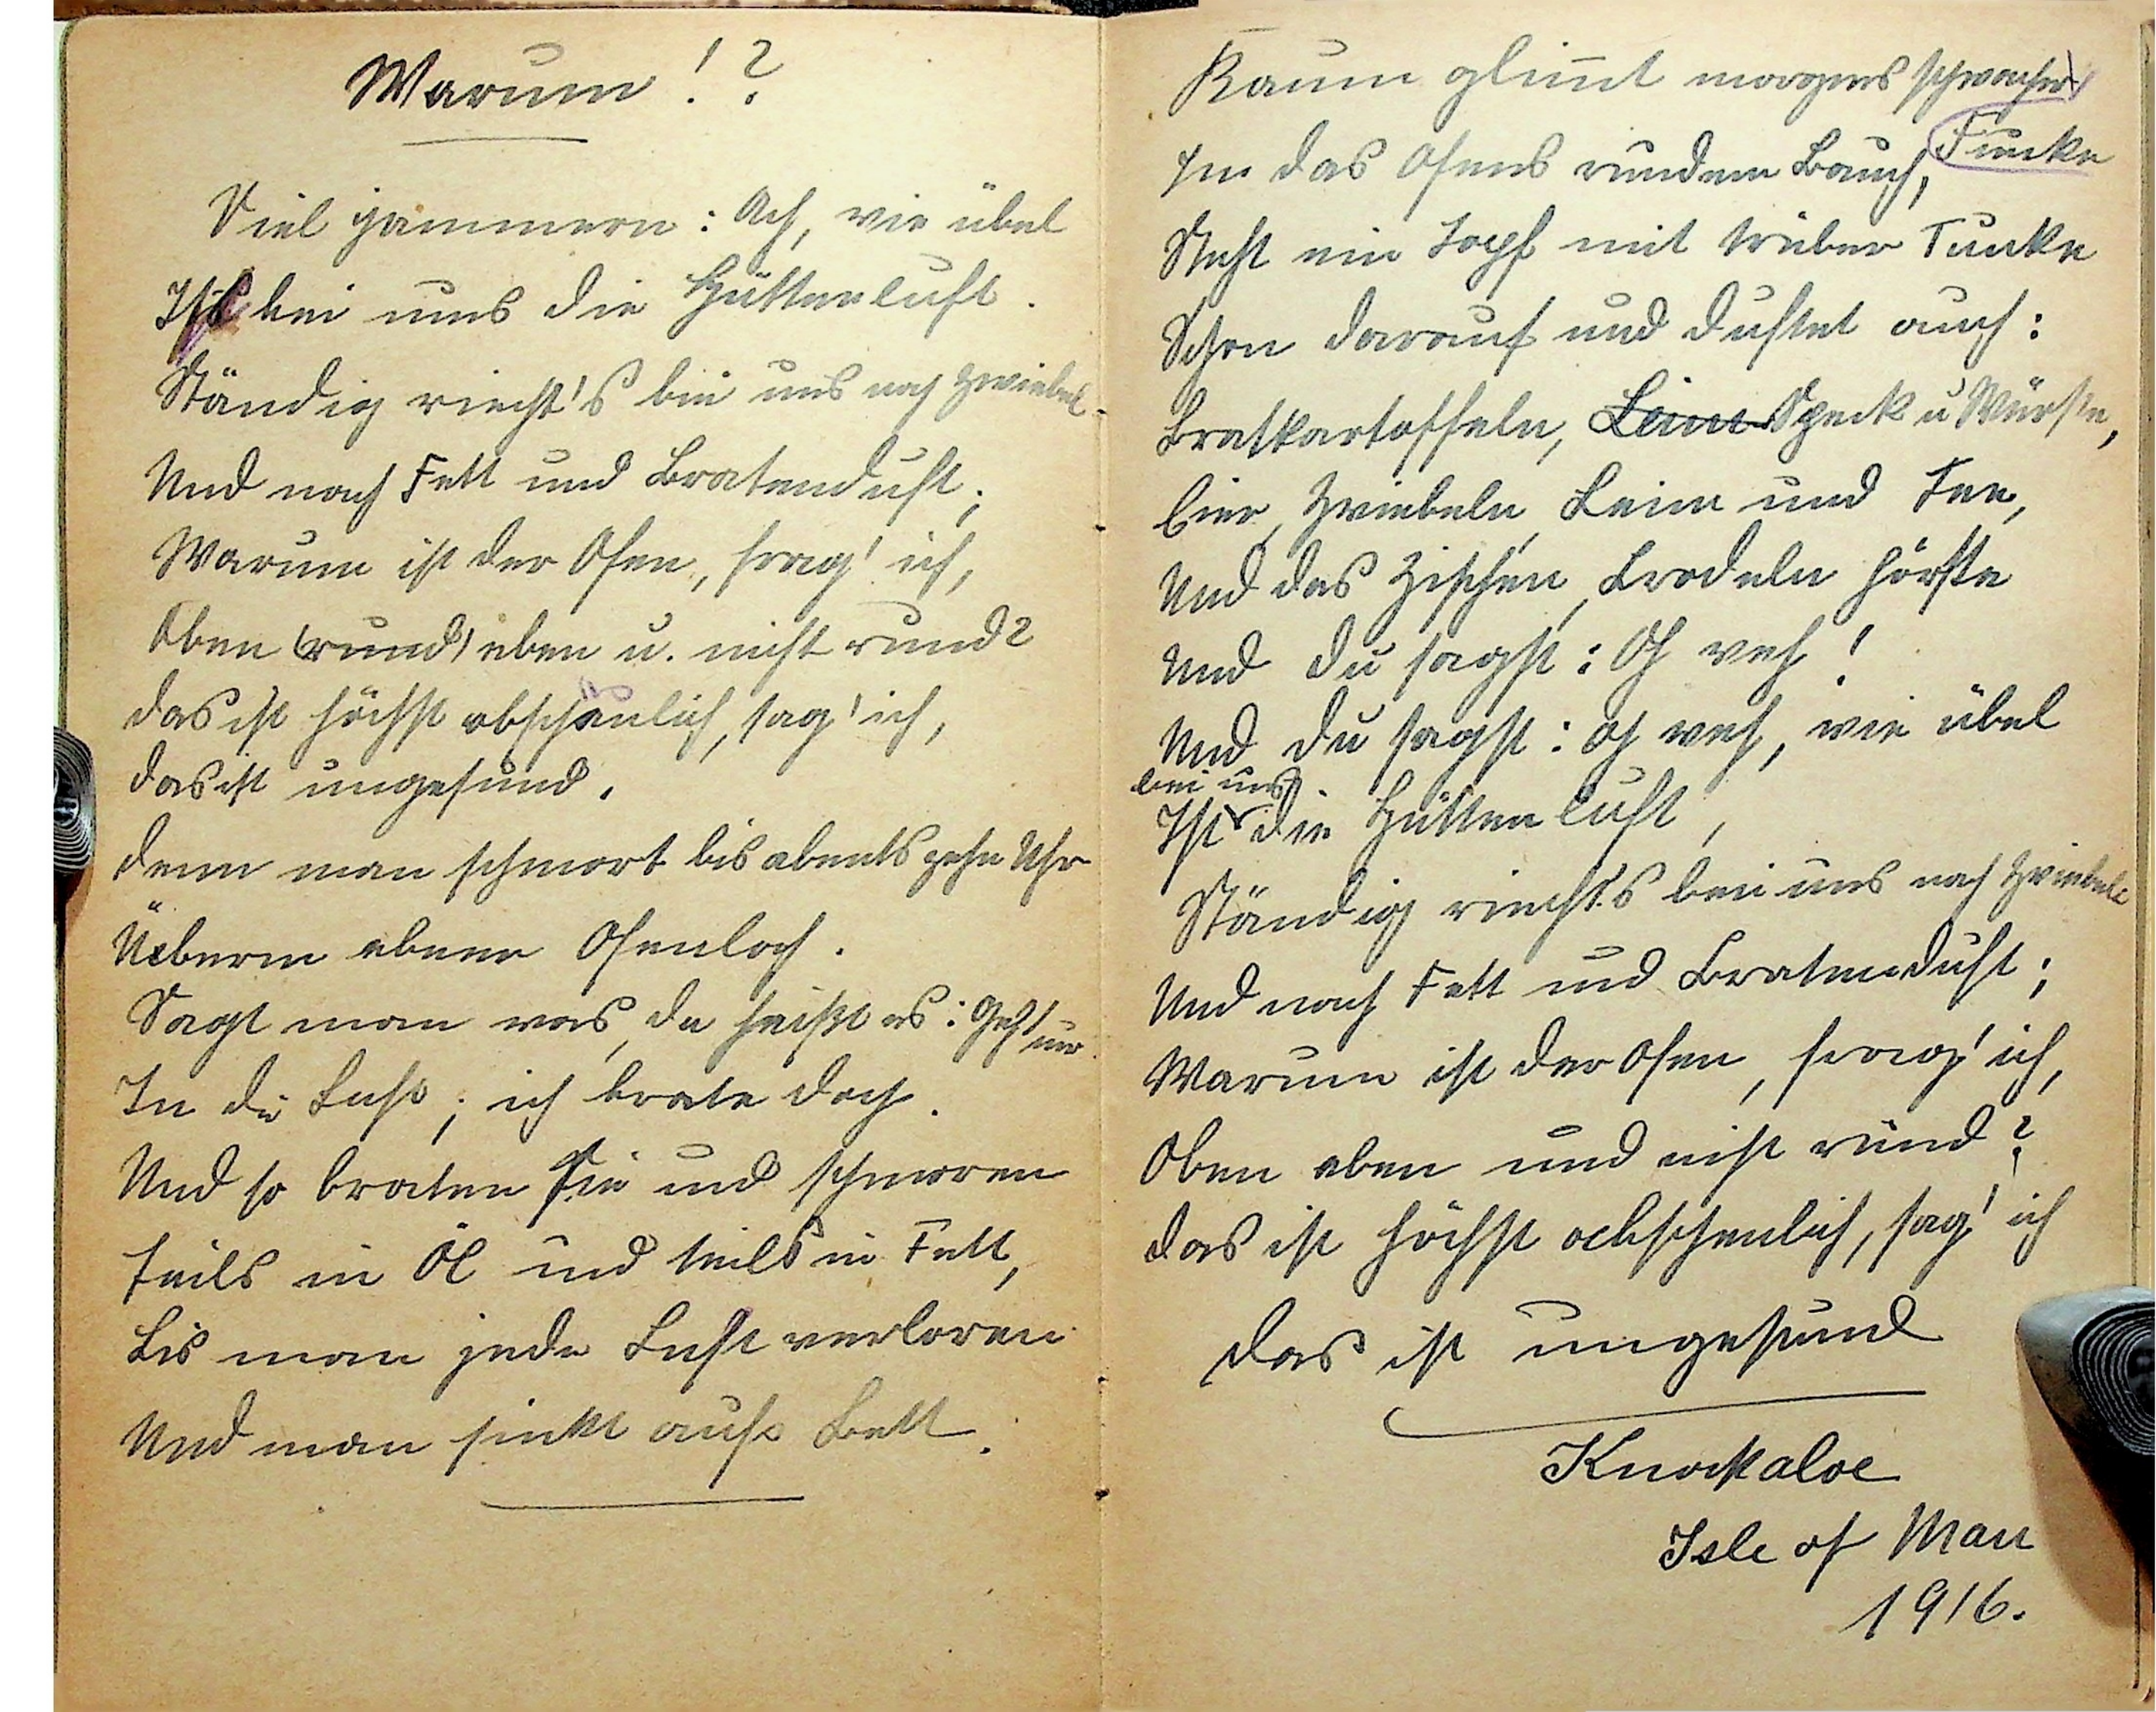 Warum!?
Viel jammern: Ach, wie übel
Ist bei uns die Hüttenluft.
Ständig riecht's bei uns nach Zwiebel
Und nach Fett und Bratenduft;
Warum ist der Ofen, frag' ich,
Oben (rund) eben u. nicht rund?
Das ist höchst abscheulich, sag' ich,
Das ist ungesund.
Denn man schmort bis abends zehn Uhr
Ueberm ebene Ofenloch.
Sagt man was, da heißt es: Geh' nur
In die Luft; ich brate doch.
Und so braten Sie und schmoren
Teils in Öl und teils in Fett,
Bis man jede Lust verloren
Und man sinkt aufs Bett.
Kaum glimmt morgens schwacher
In das Ofens rundem Bauch, Funke
Steht ein Topf mit trüber Tunke
Schon darauf und duftet auch:
Bratkartoffeln, Leim Speck u Würste,
Eier, Zwiebeln, Leim und Tee,
Und das Zischen, Brodeln hörste
Und du sagst: Oh weh!
Und du sagst: oh weh, wie übel
bei uns
Ist die Hüttenluft,
Ständig riecht's bei uns nach Zwiebel
Und nach Fett und Bratenduft;
Warum ist der Ofen, frag' ich,
Oben eben und nicht rund?
Das ist höchst abscheulich, sag' ich
Das ist ungesund
Knockaloe
Isle of Man
1916.